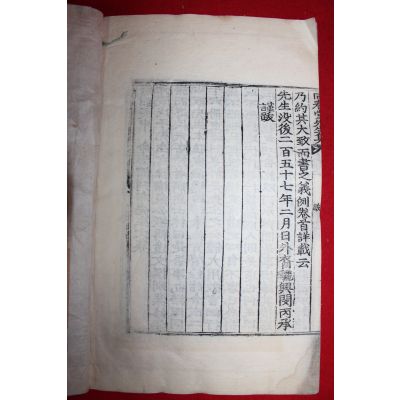 乃約其大致而書之義例卷首詳載云
先生沒後二百五十七年二月日外裔驪興閔丙承
謹跋